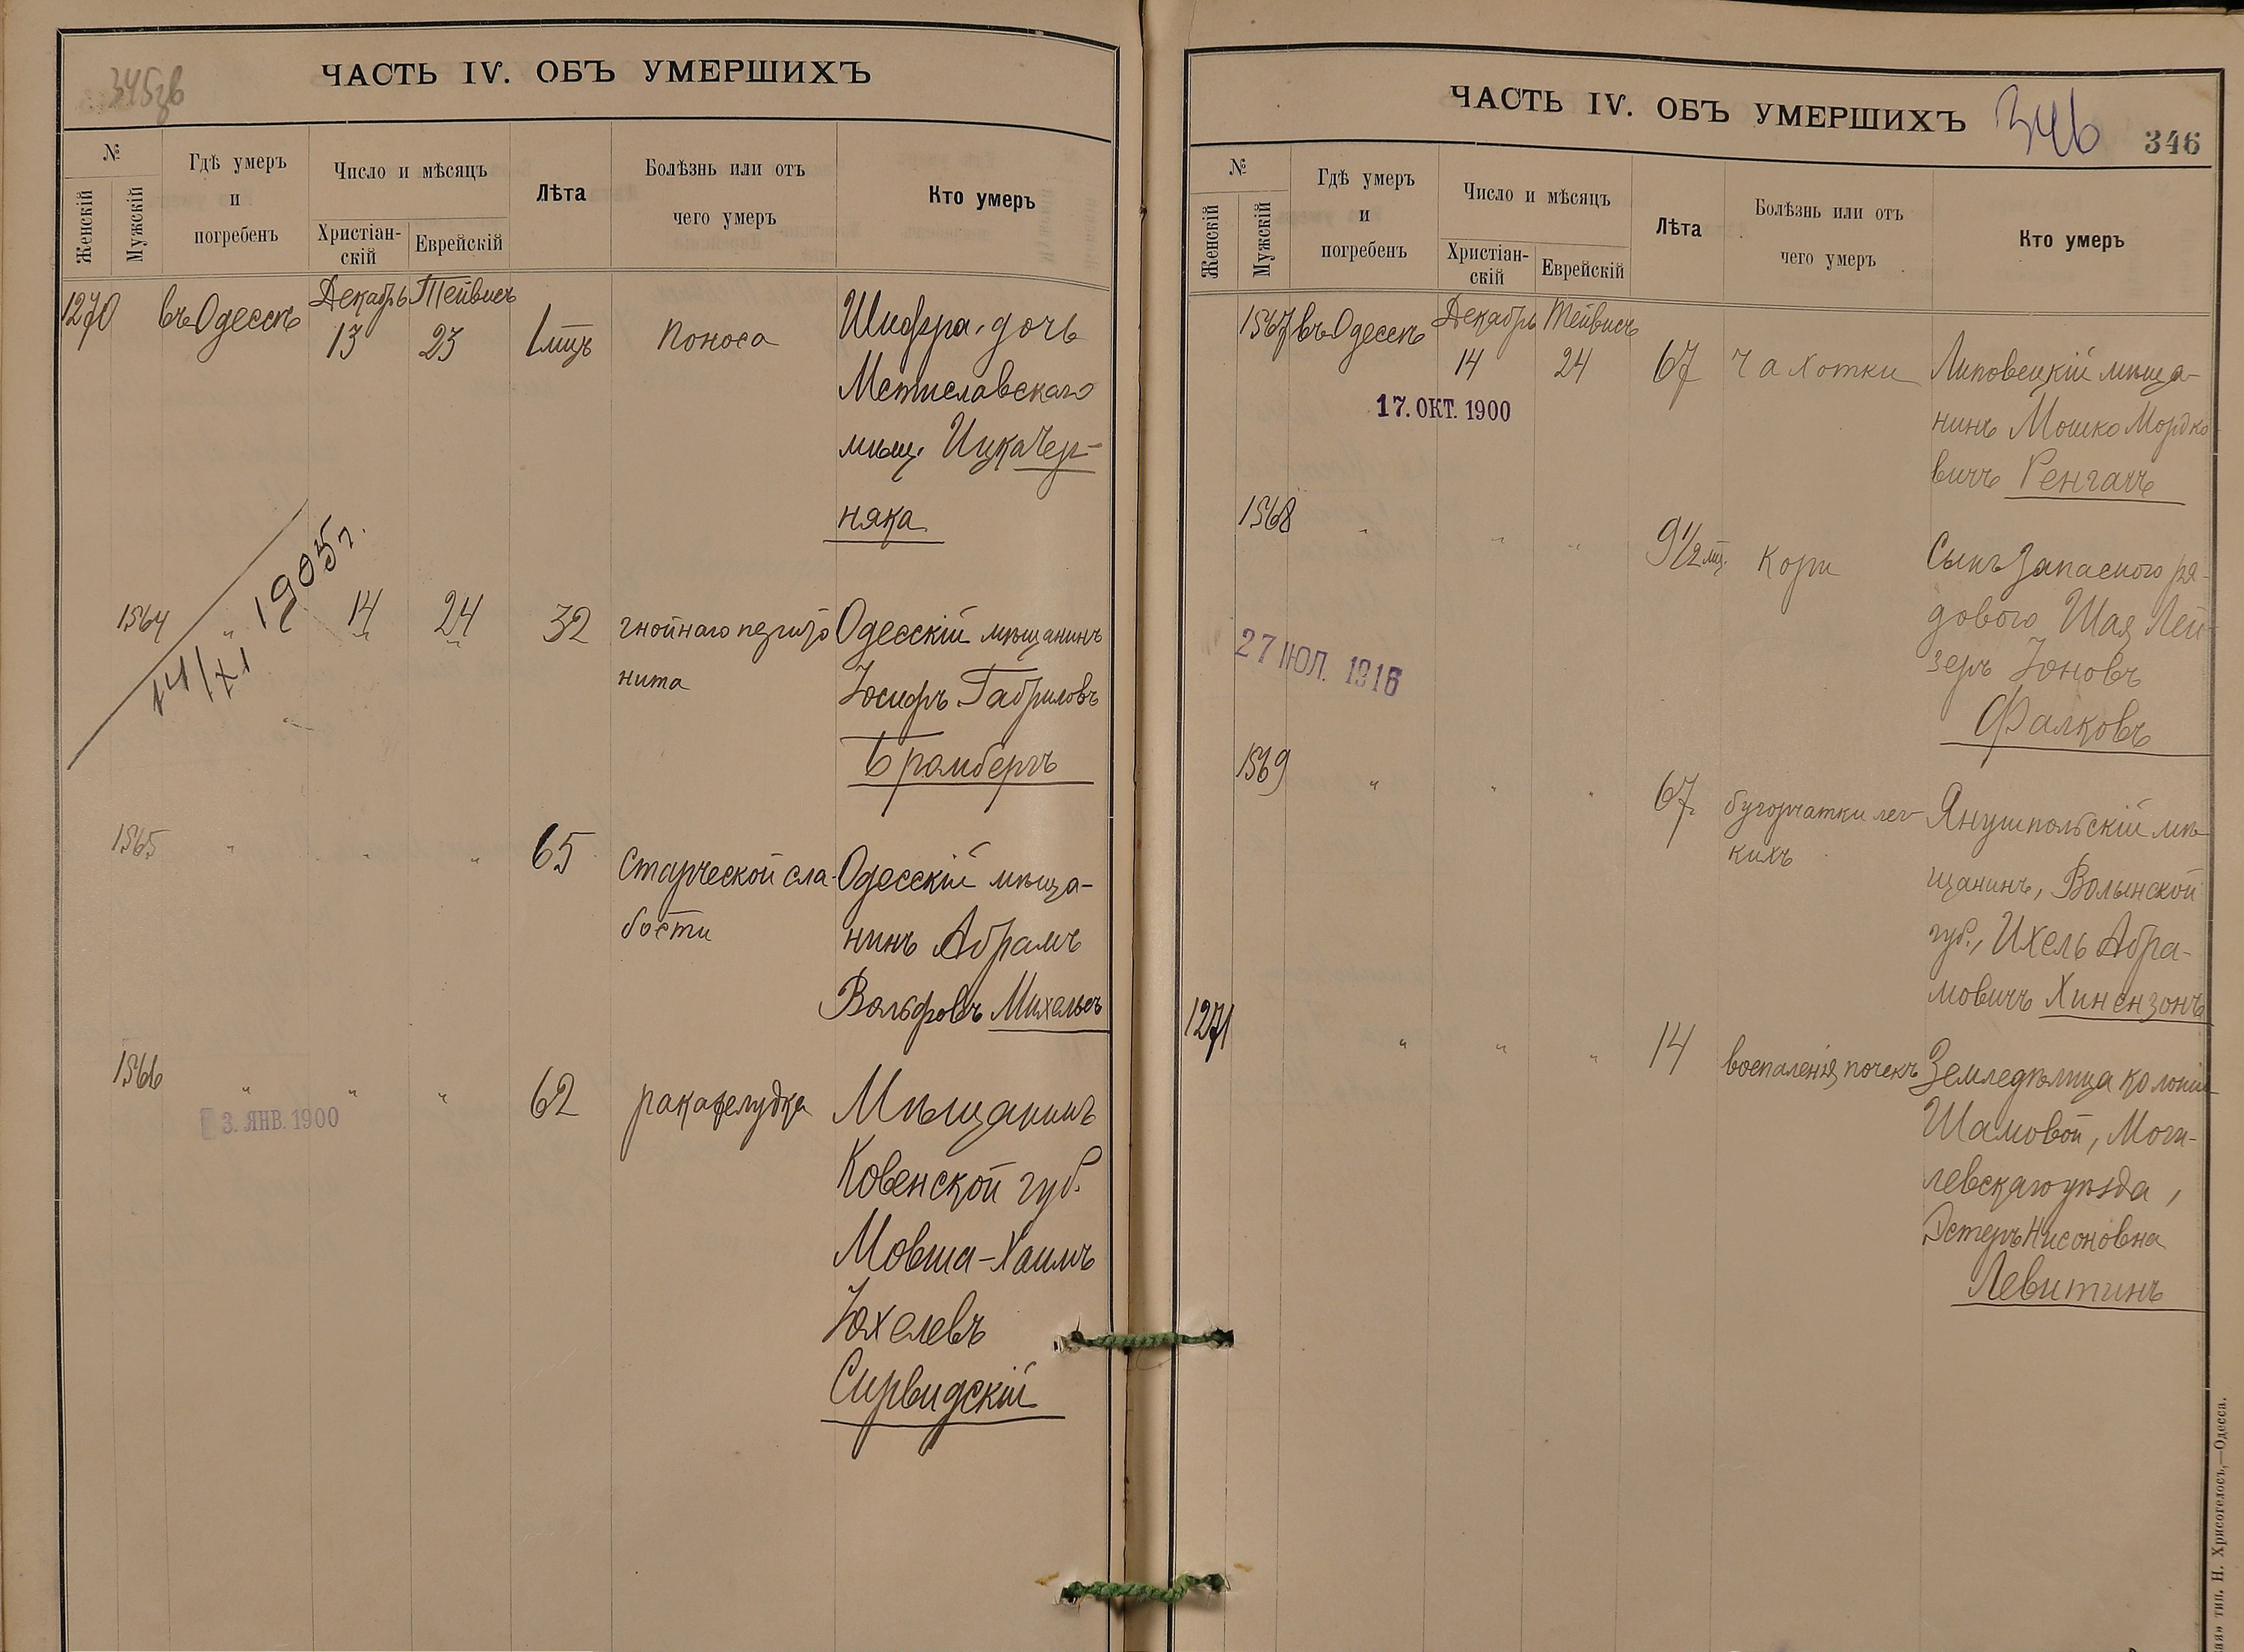 345об
ЧАСТЬ IV. ОБЪ УМЕРШИХЪ
№
Женскій
Мужскій
Гдѣ умеръ
и
погребенъ
Число и мѣсяцъ
Христіан-
скій
Еврейскій
Лѣта
Болѣзнь или отъ
чего умеръ
Кто умеръ
1270
въ Одессѣ
Декабрь
13
Тейвисъ
23
1 мцъ
Поноса
Шифра, дочь
Мстиславскаго
мѣщ. Ицка Чер-
няка
14/XI 1905 г.
1564
"
14
24
32
гнойнаго перито
нита
Одесскій мѣщанинъ
Іосифъ Габриловъ
Бромбергъ
1565
"
"
"
65
Старческой сла-
бости
Одесскій мѣща-
нинъ Абрамъ
Вольфовъ Михельсъ
1566
"
"
"
62
рака желудка
3. ЯНВ. 1900
Мѣщанинъ
Ковенской губ.
Мовша-Хаимъ
Іохелевъ
Сирвидскій
ЧАСТЬ IV. ОБЪ УМЕРШИХЪ
346
346
№
Женскій
Мужскій
Гдѣ умеръ
и
погребенъ
Число и мѣсяцъ
Христіан-
скій
Еврейскій
Лѣта
Болѣзнь или отъ
чего умеръ
Кто умеръ
1567
въ Одессѣ
Декабрь
14
Тейвисъ
24
67
Чахотки
17. ОКТ. 1900
Липовецкій мѣща-
нинъ Мошко Мордко-
вичъ Ренгачъ
1568
"
"
"
9 1/2 мц.
Кори
27 ІЮЛ. 1916
Сынъ запасного ря-
дового Шая Лей-
зеръ Іоновъ
Фалковъ
1569
"
"
"
67
бугорчатки лег-
кихъ
Янушпольскій мѣ-
щанинъ, Волынской
губ., Ихель Абра-
мовичъ Хинензонъ
1271
"
"
"
14
воспаленія почекъ
Земледѣлица колоніи
Шамовой, Моги-
левскаго уѣзда,
Эстеръ Нисоновна
Левитинъ
тип. Н. Хрисогелосъ,—Одесса.